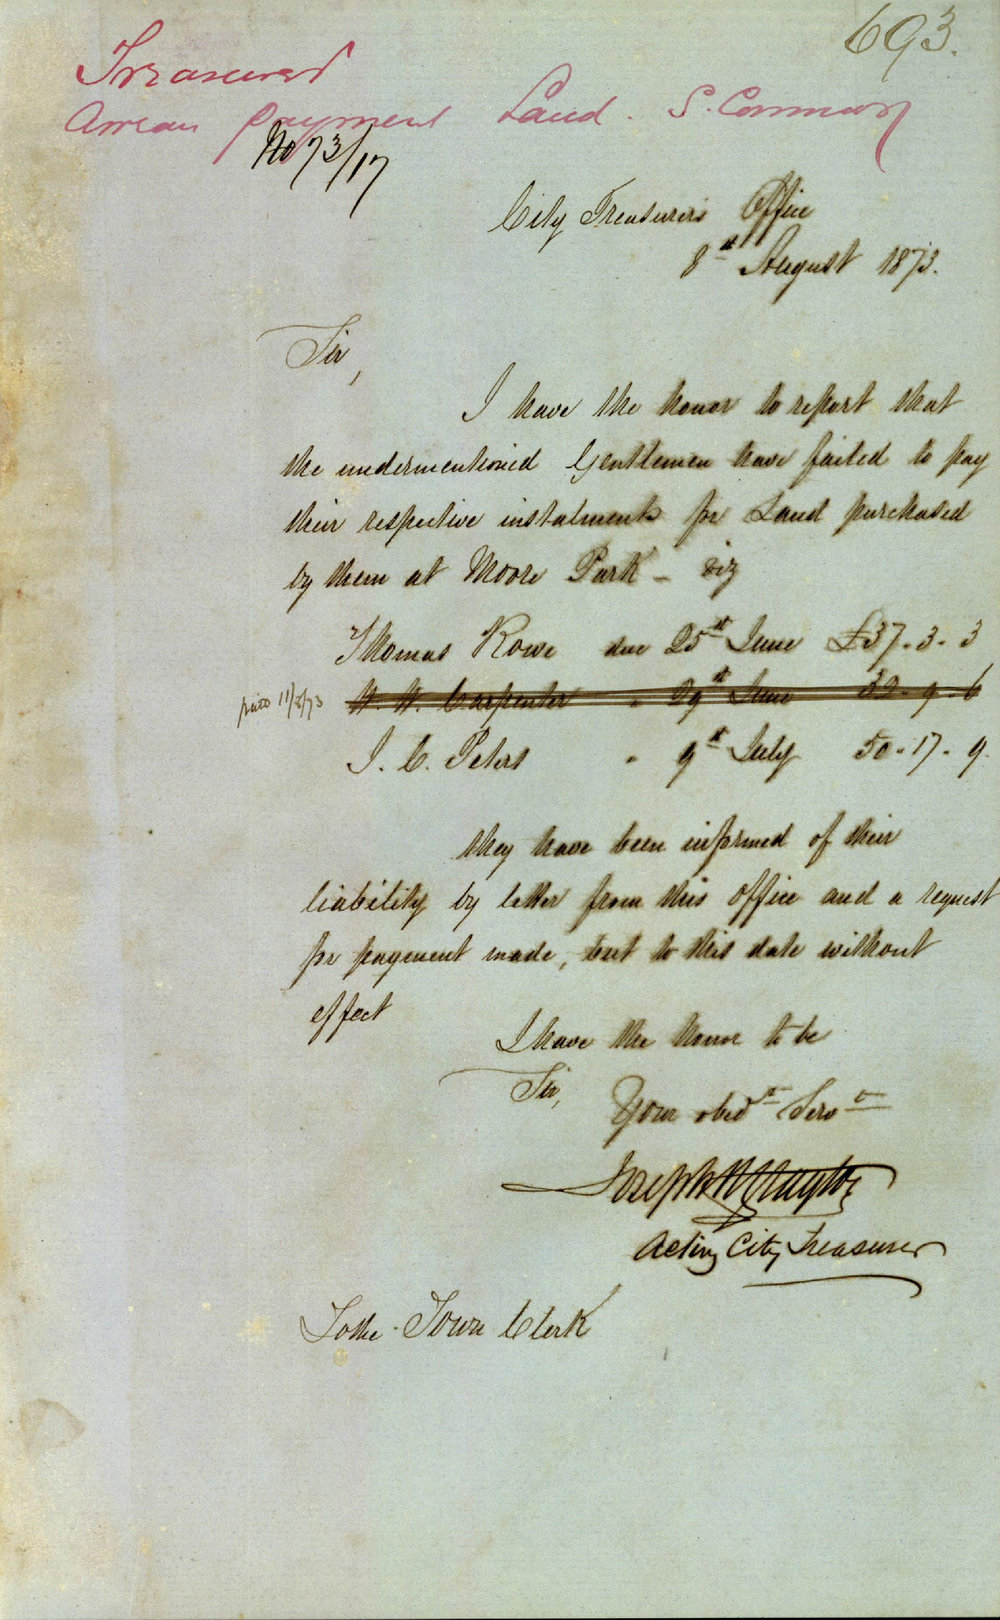 693.
Treasurer
Arrear payment Land. S. Common
No 73/17
City Treasurer's Office
8th August 1873.
Sir,
I have the honor to report that
the undermentioned Gentlemen have failed to pay
their respective instalments for Land purchased
by them at Moore Park - viz
Thomas Rowe due 25th June £37.3.3
paid 11/8/73 W. W. Carpenter " 29th June 32.9.6
J. C. Peters " 9th July 50.17.9.
they have been informed of their
liability by letter from this office and a request
for payment made, but to this date without
effect
I have the honor to be
Sir,
Your obedt Servt
Joseph Clayton
Acting City Treasurer
To the Town Clerk